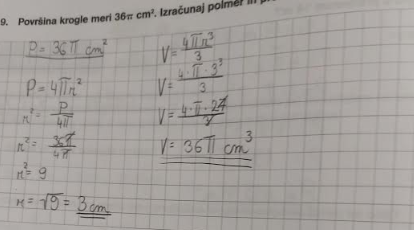 9. Površina krogle meri 36π cm². Izračunaj polmer in
P = 36π cm²
P = 4πr²
r² = P/4π
r² = 36π/4π
r² = 9
r = √9 = 3cm
V = 4πr³/3
V = 4·π·3³/3
V = 4·π·27/3
V = 36π cm³